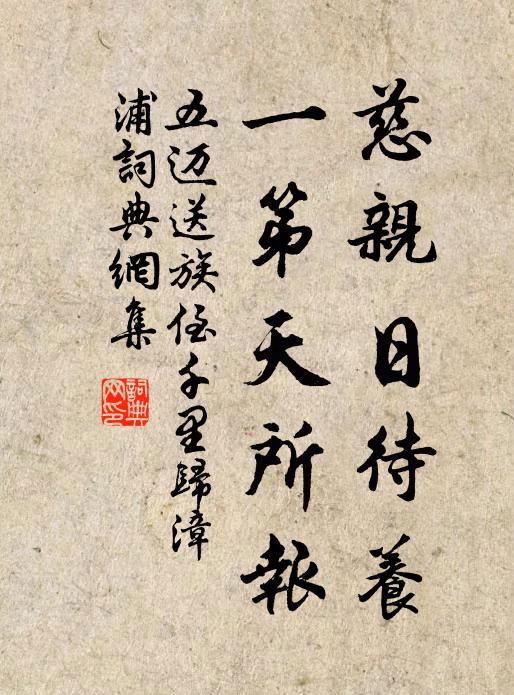 慈親日待養
一第天所報
五迈送族侄千里歸漳
浦詞典網集
詞典
网印